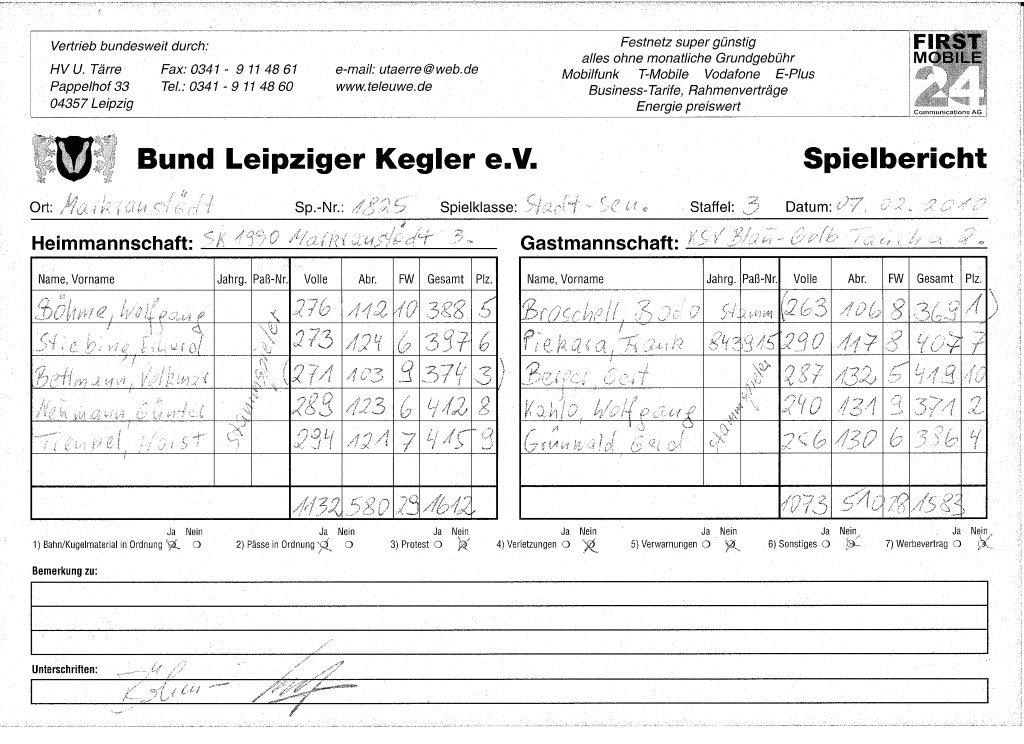 Vertrieb bundesweit durch:
HV U. Tärre Fax: 0341 - 9 11 48 61 e-mail: utaerre@web.de
Pappelhof 33 Tel.: 0341 - 9 11 48 60 www.teleuwe.de
04357 Leipzig
Festnetz super günstig
alles ohne monatliche Grundgebühr
Mobilfunk T-Mobile Vodafone E-Plus
Business-Tarife, Rahmenverträge
Energie preiswert
FIRST
MOBILE
24
Communications AG
Bund Leipziger Kegler e.V. Spielbericht
Ort: Markranstädt Sp.-Nr.: 1825 Spielklasse: Stadt-Sen. Staffel: 3 Datum: 07.02.2010
Heimmannschaft: SK 1990 Markranstädt 3. Gastmannschaft: KSV Blau-Gelb Taucha 2.
Name, Vorname Jahrg. Paß-Nr. Volle Abr. FW Gesamt Plz.
Böhme, Wolfgang 276 112 10 388 5
Stiebing, 273 124 6 397 6
Bettmann, Volkmar (271 103 9 374 3)
Neumann, Günter 289 123 6 412 8
Trempel, Horst 294 121 7 415 9
Stammspieler
1132 580 29 1612
Name, Vorname Jahrg. Paß-Nr. Volle Abr. FW Gesamt Plz.
Broschell, Bodo Stamm (263 106 8 369 1)
Piekara, Frank 843915 290 117 8 407 7
Berger, Gert 287 132 5 419 10
Kahlo, Wolfgang 240 131 9 371 2
Grünwald, Gerd 256 130 6 386 4
Stammspieler
1073 510 28 1583
Ja Nein Ja Nein Ja Nein Ja Nein Ja Nein Ja Nein Ja Nein
1) Bahn/Kugelmaterial in Ordnung 2) Pässe in Ordnung 3) Protest 4) Verletzungen 5) Verwarnungen 6) Sonstiges 7) Werbevertrag
Bemerkung zu:
Unterschriften: